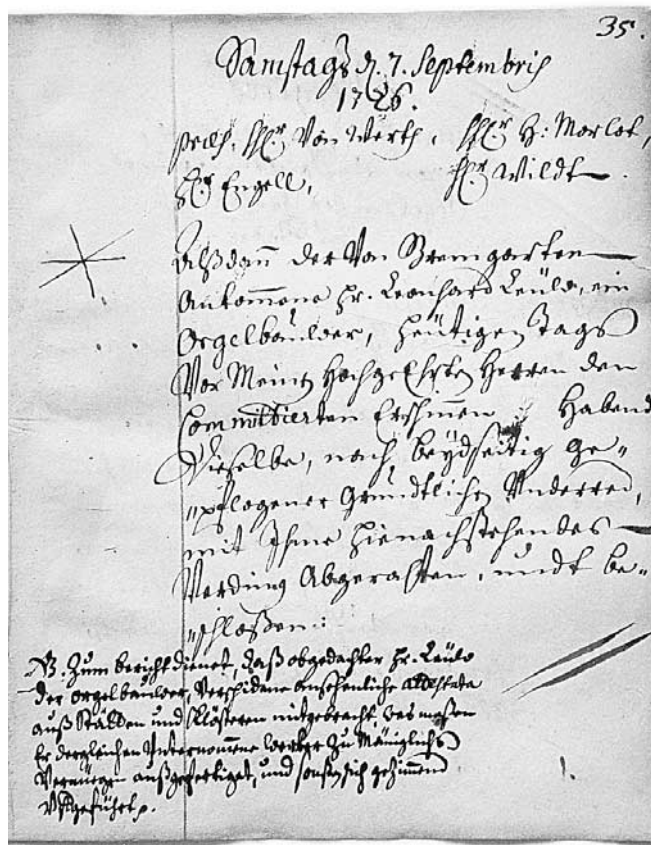 35.
Samstags d. 7. Septembris
1726.
præs. Hr. Von Werth, Hr. H: Morlot,
Hr. Engell, Hr. Wildt.
Alßdann der Von Bremgarten
Ankommene Hr. Leonhard Leüw, ein
Orgelbauwer, heütigen Tags
Vor Meinen Hochgeehrten Herren den
Committierten Erschinnen Habend
Dieselbe, nach beydseitig ge-
"pflogener gründtlichen Underred,
mit Ihme hienachstehendes
Verding Abgerahten, undt be-
"schloßen:
NB. Zum bericht dienet, daß obgedachter Hr. Leüw
der orgelbauwer, Verschidene ansehenliche Attestata
auß Stätten und Klösteren mitgebracht, was maßen
Er dergleichen Unternommene werker Zu Mäniglichs
Vernüegen außgefertiget, und sonsten sich geziment
Uffgeführt p.